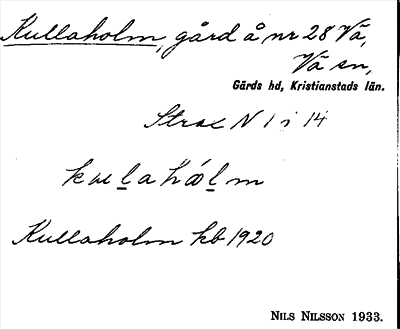 Kullaholm, gård å nr 28 Vä,
Vä sn,
Gärds hd, Kristianstads län.
Strax N 1 i 14
Kullaholm kb 1920
NILS NILSSON 1933.